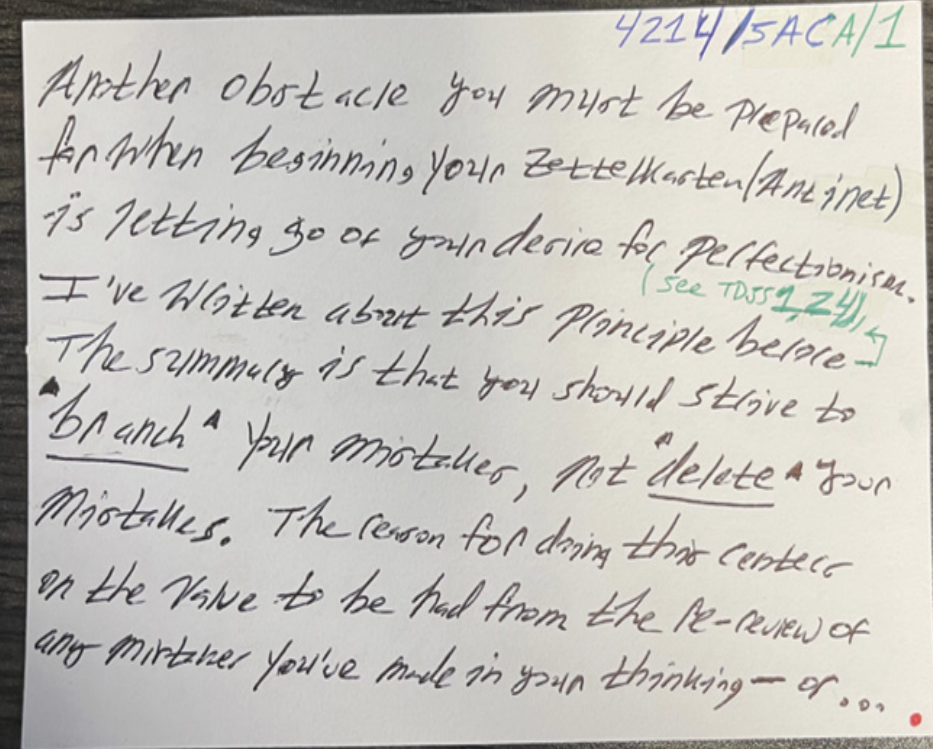 4214/5ACA/1
Another obstacle you must be prepared
for when beginning your Zettelkasten/(Antinet)
is letting go of your desire for perfectionism.
(see TDSS1,24),
I've written about this principle before
The summary is that you should strive to
"branch" your mistakes, not "delete" your
mistakes. The reason for doing this centers
on the value to be had from the re-review of
any mistakes you've made in your thinking — or...